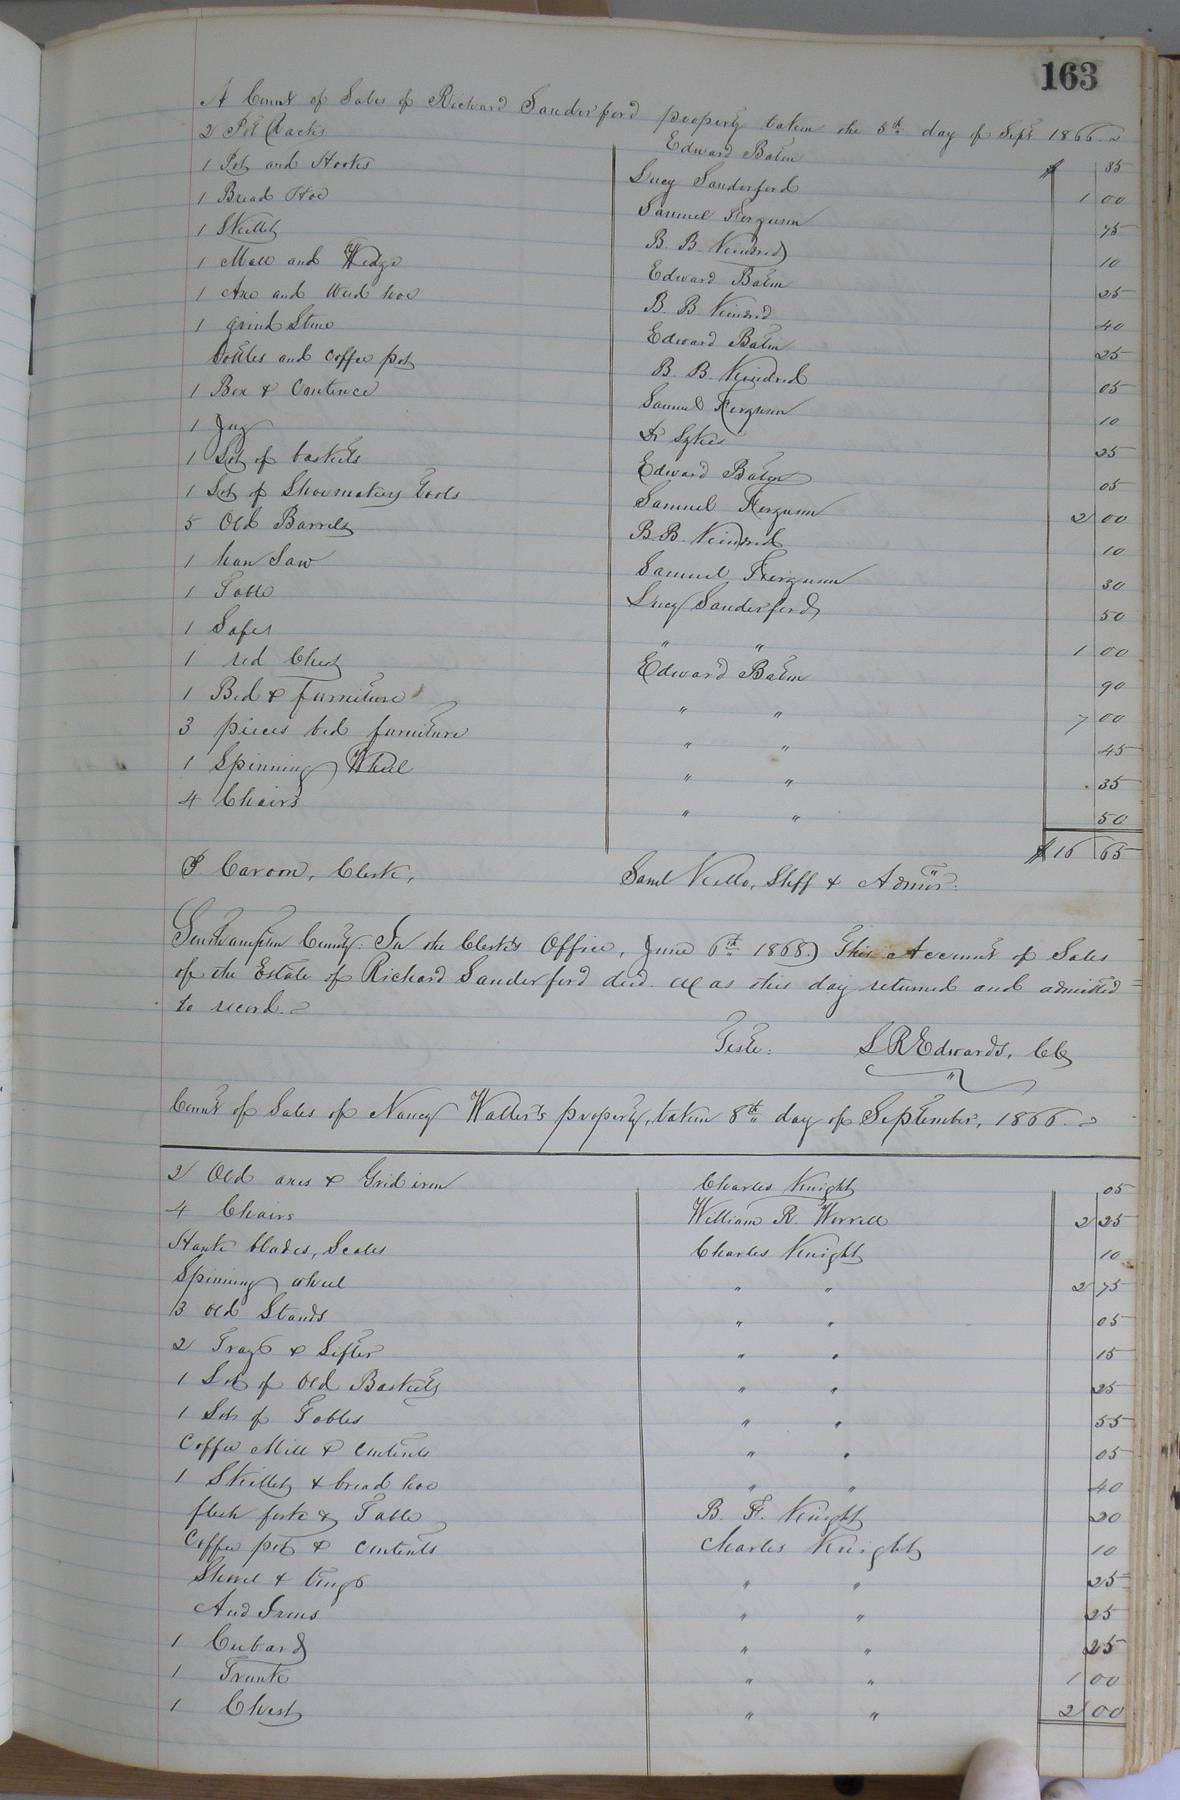 163
A Count of Sales of Richard Sanderford property taken the 5th day of Sept 1866.
2 Pot Racks Edward Batm $ 35
1 Pot and Hooks Lucy Sanderford 1 00
1 Bread Hoe Samuel Ferguson 75
1 Skillet B. B. Kindred 10
1 Mall and Wedge Edward Batm 25
1 Axe and Weed hoe B. B. Kindred 40
1 grind Stone Edward Batm 25
bottles and coffee pot B. B. Kindred 05
1 Box & Contence Samuel Ferguson 10
1 Jug Dr Sykes 25
1 Lot of baskets Edward Batm 05
1 Lot of Shoemakers tools Samuel Ferguson 2 00
5 Old Barrels B. B. Kindred 10
1 han Saw Samuel Ferguson 30
1 Table Lucy Sanderford 50
1 Safe " " 1 00
1 red Chest Edward Batm 90
1 Bed & furniture " " 7 00
3 pieces bed furniture " " 45
1 Spinning Wheel " " 35
4 Chairs " " 50
$16 65
P Caroon, Clerk, Saml Kello, Shff & Admor.
Southampton County. In the Clerk's Office, June 6th 1868. This Account of Sales
of the Estate of Richard Sanderford decd. was this day returned and admitted
to record.
Teste: L R Edwards, CC
Count of Sales of Nancy Waller's property, taken 8th day of September, 1866.
2 Old axes & Gridiron Charles Knight 05
4 Chairs William R. Worrell 2 25
Hank blades, Scales Charles Knight 10
Spinning wheel " " 2 75
3 Old Stands " " 05
2 Trays & Sifter " " 15
1 Lot of Old Baskets " " 25
1 Lot of Tables " " 55
Coffee Mill & contents " " 05
1 Skillet & bread hoe " " 40
flesh fork & Table B. F. Knight 20
Coffee pot & contents Charles Knight 10
Shovel & tongs " " 25
And Irons " " 25
1 Cubard " " 25
1 Trunk " " 1 00
1 Chest " " 2 00